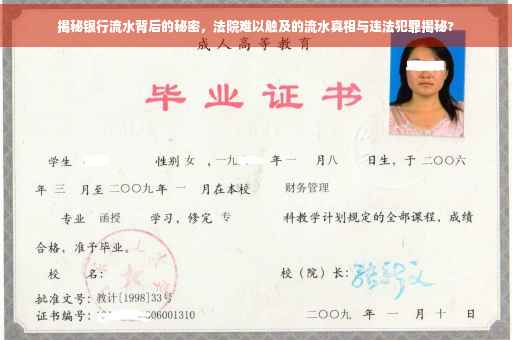 揭秘银行流水背后的秘密，法院难以触及的流水真相与违法犯罪揭秘?
成人高等教育
毕业证书
学生 性别 女 ，一九 年 一 月八 日生，于 二〇〇六
年 三 月至 二〇〇九 年 一 月在本校 财务管理
专业 函授 学习，修完 专 科教学计划规定的全部课程，成绩
合格，准予毕业。
校 名： 校（院）长：
批准文号：教计[1998]33号
证书编号： 006001310 二〇〇九 年 一 月 十 日